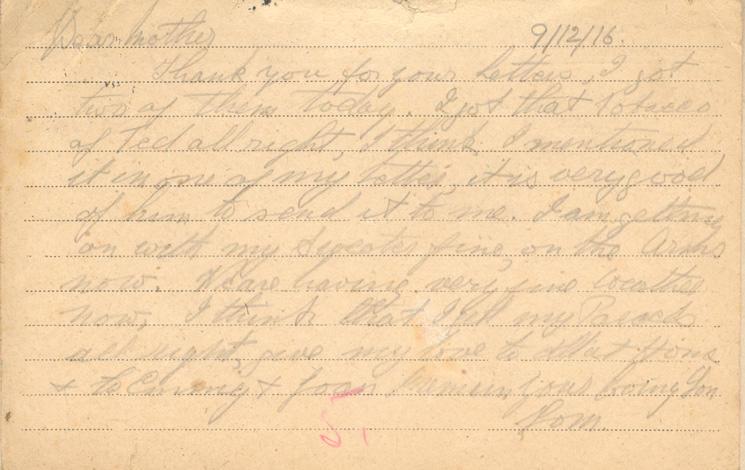 Dear mother 9/12/16.
Thank you for your letters, I got
two of them today. I got that tobacco
of Ted all right, I think I mentioned
it in one of my letters, it is very good
of him to send it to me. I am getting
on with my sweater fine, on the Arms
now. We are having very fine weather
now, I think that I got my
all right, give my love to all at Home
& to & Joan remain your loving Son
Tom.
5.